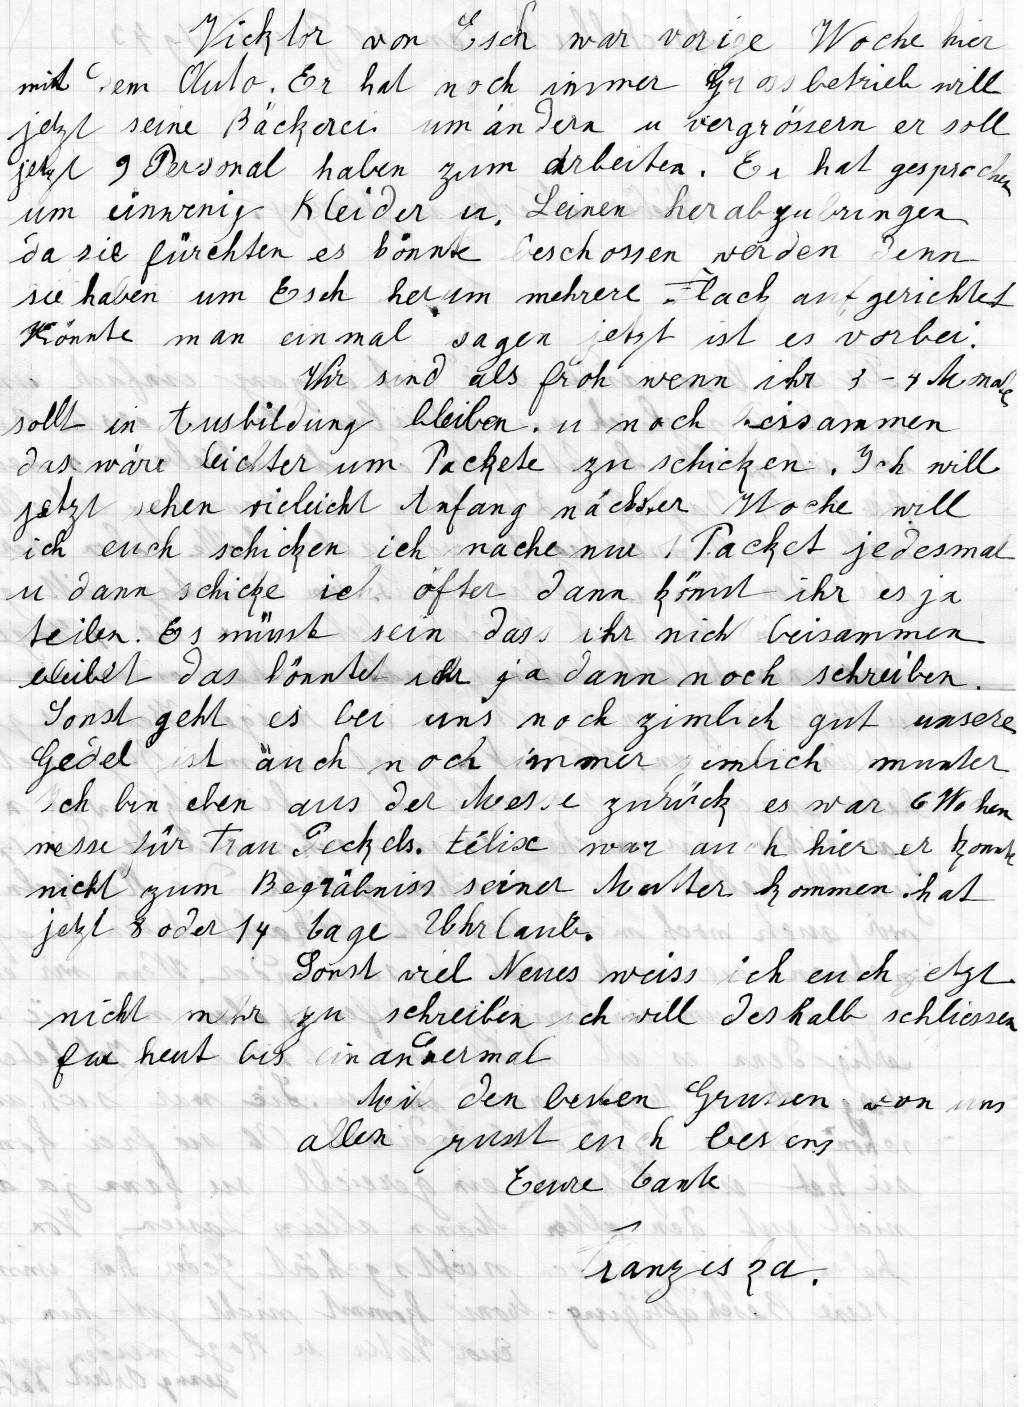 Vicktor von Esch war vorige Woche hier
mit dem Auto. Er hat noch immer Grossbetrieb will
jetzt seine Bäckerei umändern u vergrössern er soll
jetzt 9 Personal haben zum arbeiten. Er hat gesprochen
um einwenig Kleider u. Leinen herabzubringen
da sie fürchten es könnte beschossen werden denn
sie haben um Esch herum mehrere Flack aufgerichtet
Könnte man einmal sagen jetzt ist es vorbei.
Ihr sind als froh wenn ihr 3-4 Monate
sollt in Ausbildung bleiben. u noch beisammen
das wäre leichter um Packete zu schicken. Ich will
jetzt sehen vieleicht Anfang nächster Woche will
ich euch schicken ich mache nur 1 Packet jedesmal
u dann schicke ich öfter dann könnt ihr es ja
teilen. Es müsst sein dass ihr nicht beisammen
bleibet das könntet ihr ja dann noch schreiben.
Sonst geht es bei uns noch zimlich gut unsere
Gedel ist äuch noch immer zimlich munter
Ich bin eben aus der Messe zurück es war 6 Wohen
messe für Frau Peckels. Félix war auch hier er konnte
nicht zum Begräbniss seiner Mutter kommen hat
jetzt 8 oder 14 tage Uhrlaub.
Sonst viel Neues weiss ich euch jetzt
nicht mehr zu schreiben ich will deshalb schliessen
für heut bis einandermal
Mit den besten Grussen von uns
allen grusst euch bestens
Eeure tante
Franziska.